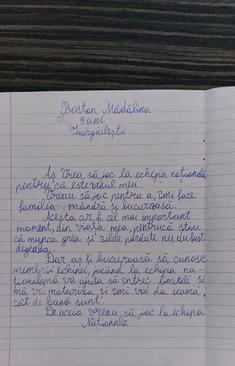 Bostan Mădălina
9 ani
Giurgiulești
Aș vrea să joc la echipa națională
pentru că este visul meu.
Vreau să joc pentru a, îmi face
familia mândră și bucuroasă.
Acesta ar fi cel mai important
moment, din viața mea, pentrucă știu
că munca grea și zilele pierdute nu au fost
degeaba.
Dar aș fi bucuroasă să cunosc
membrii echipei jucând la echipa na-
țională va ajuta să întrec limitele și
mă voi maturiza și îmi voi da seama
cât de bună sunt.
De aceia vreau să joc la echipa
Națională